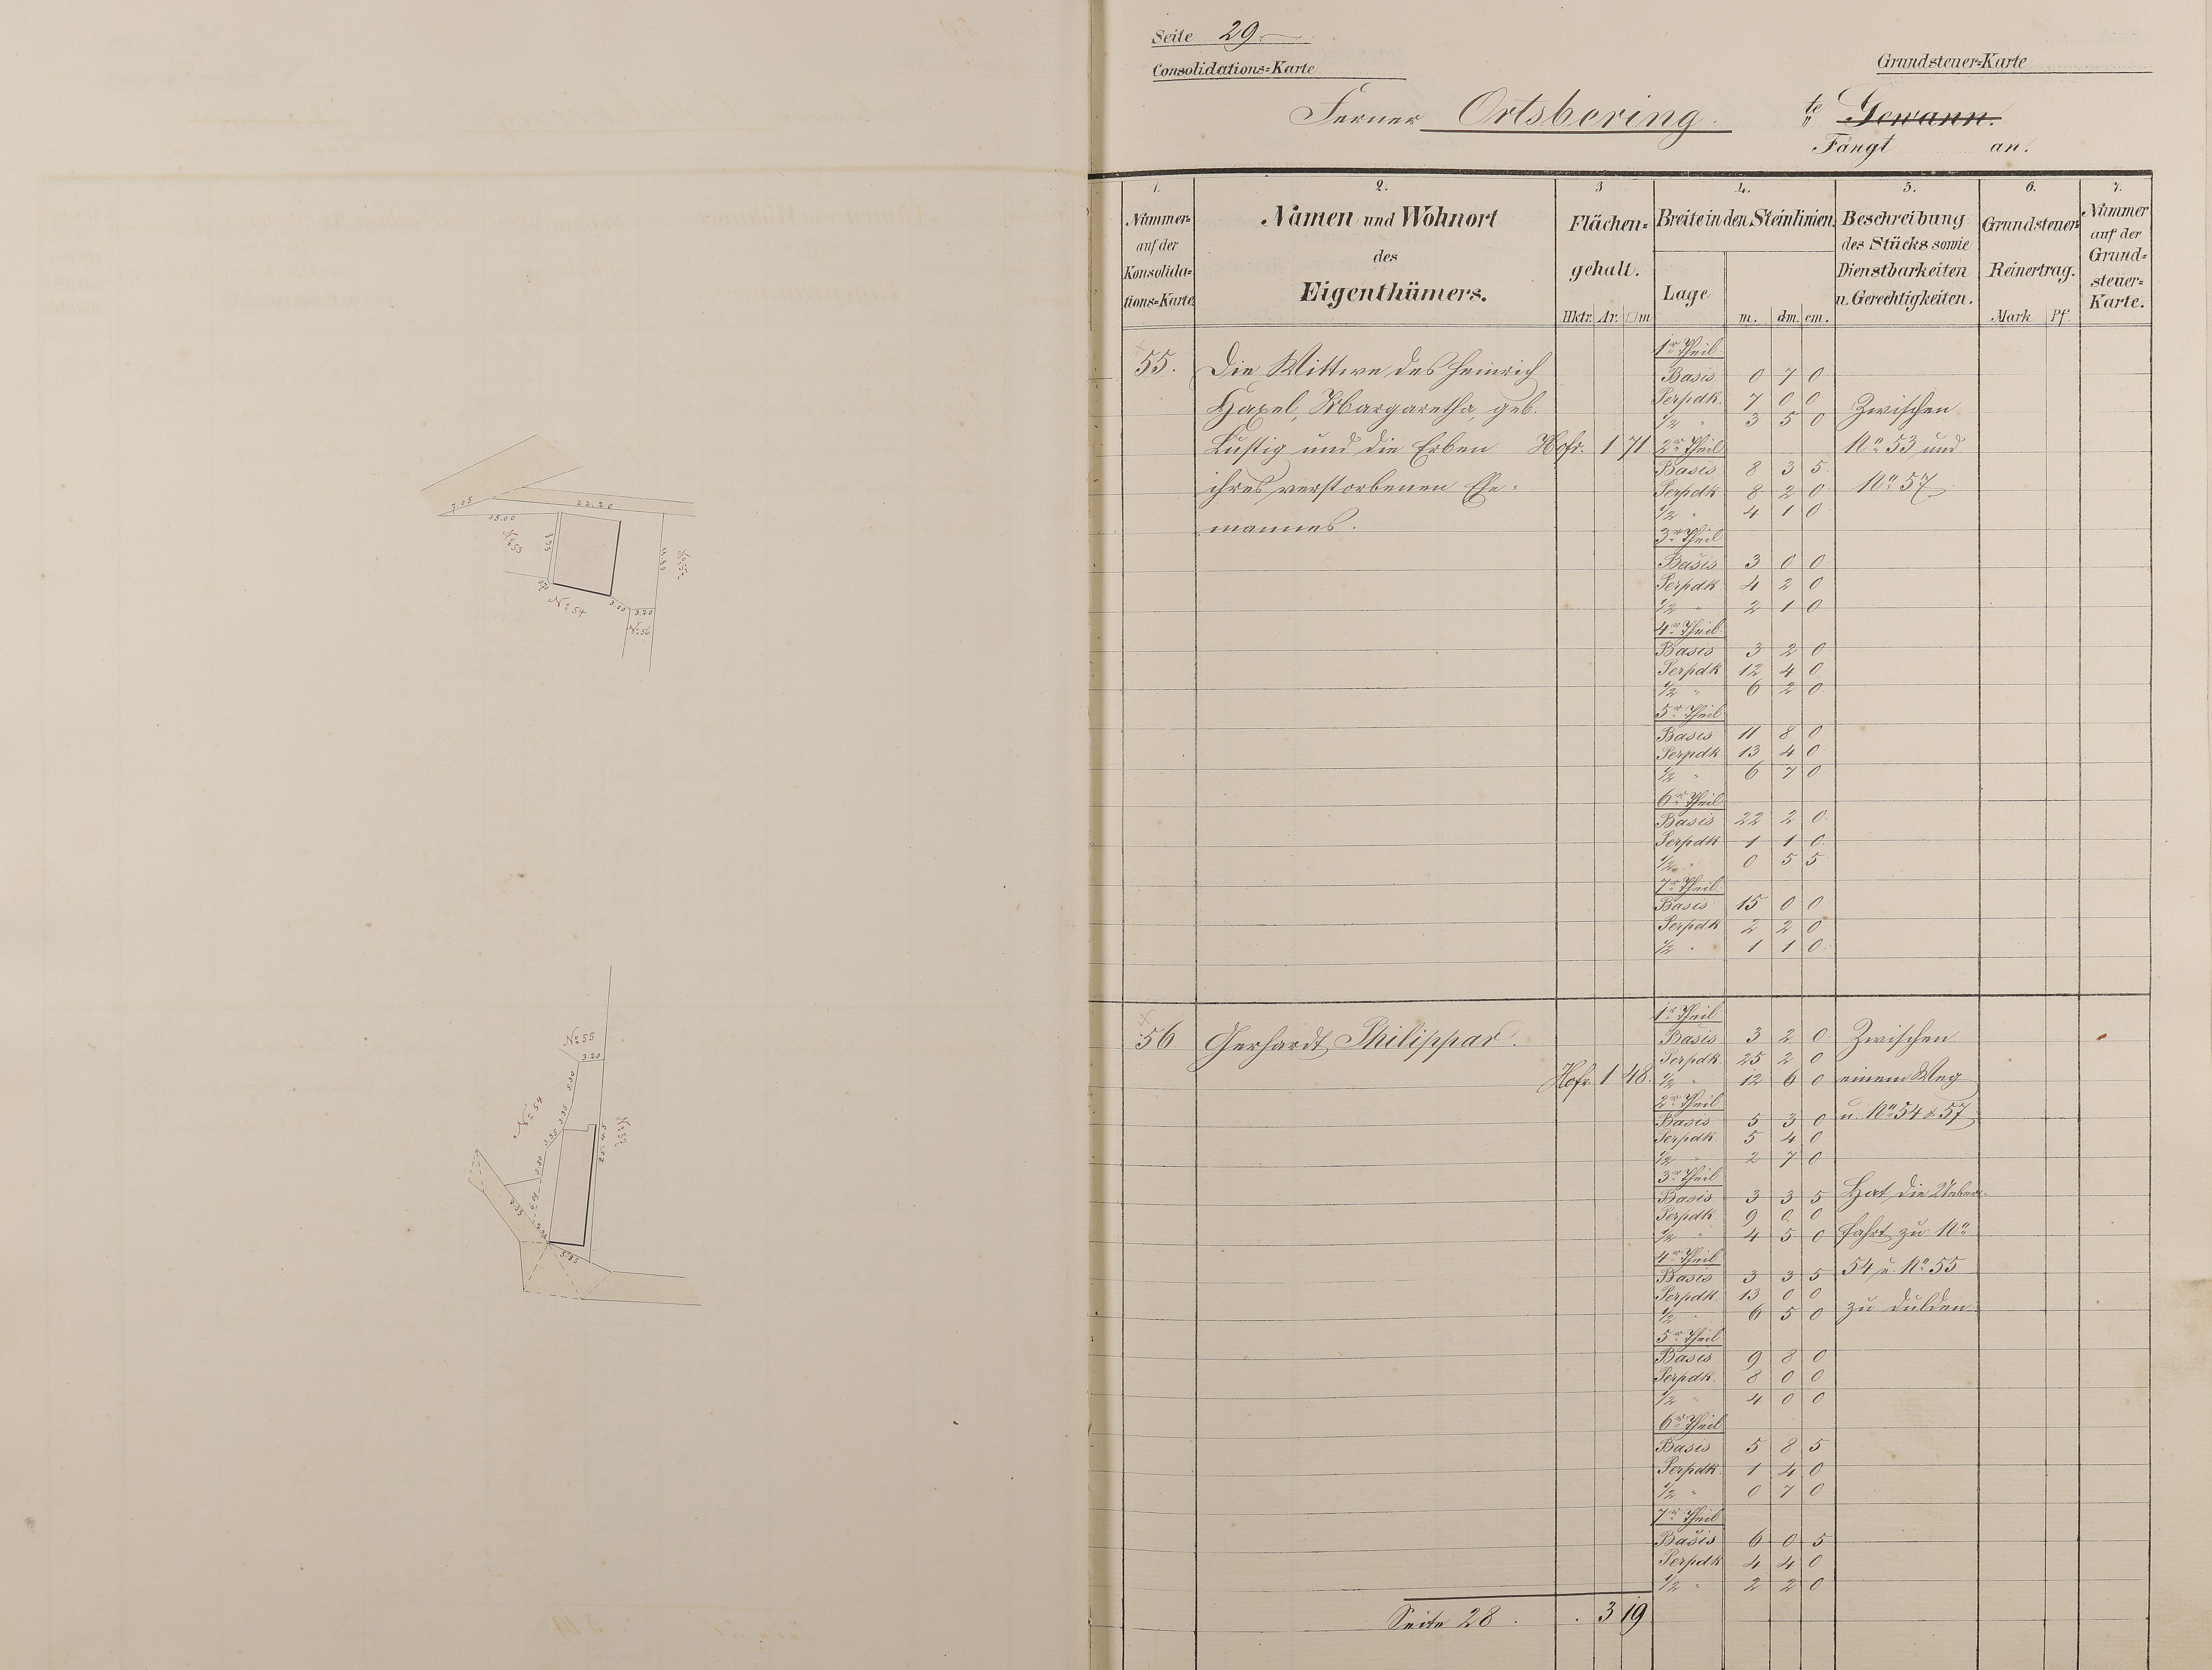 7.05
22.20
15.00
No 53
8.35
13.80
No 57
0.70
No 54
3.00
3.20
No 56
No 55
3.20
5.30
No 54
3.35
3.35
25.45
No 57
3.30
9.35
5.85
Seite 29.
Consolidations=Karte
Grundsteuer=Karte
Ferner Ortsbering. te Gewann.
Fängt an.
1. 2. 3 4. 5. 6. 7.
Nummer auf der Konsolidations=Karte
Namen und Wohnort des Eigenthümers.
Flächen=gehalt.
Hktr. Ar. □m
Breite in den Steinlinien.
Lage m. dm. cm.
Beschreibung des Stücks sowie Dienstbarkeiten u. Gerechtigkeiten.
Grundsteuer=Reinertrag.
Mark Pf.
Nummer auf der Grund=steuer=Karte.
55. Die Wittwe des Heinrich
Haxel, Margaretha, geb.
Lustig und die Erben Hofr. 1 71
ihres verstorbenen Ehe=
mannes.
1r Theil
Basis 0 7 0
Perpdk. 7 0 0
1/2 " 3 5 0
2r Theil
Basis 8 3 5
Perpdk 8 2 0
1/2 " 4 1 0
3r Theil
Basis 3 0 0
Perpdk 4 2 0
1/2 " 2 1 0
4r Theil
Basis 3 2 0
Perpdk 12 4 0
1/2 " 6 2 0
5r Theil
Basis 11 8 0
Perpdk 13 4 0
1/2 " 6 7 0
6r Theil
Basis 22 2 0
Perpdk 1 1 0
1/2 " 0 5 5
7r Theil
Basis 15 0 0
Perpdk 2 2 0
1/2 " 1 1 0
Zwischen
No 53 und
No 57
56 Gerhardt, Philippar.
Hofr. 1 48.
1r Theil
Basis 3 2 0
Perpdk 25 2 0
1/2 " 12 6 0
2r Theil
Basis 5 3 0
Perpdk. 5 4 0
1/2 " 2 7 0
3r Theil
Basis 3 3 5
Perpdk 9 0 0
1/2 " 4 5 0
4r Theil
Basis 3 3 5
Perpdk 13 0 0
1/2 " 6 5 0
5r Theil
Basis 9 8 0
Perpdk. 8 0 0
1/2 " 4 0 0
6r Theil
Basis 5 8 5
Perpdk 1 4 0
1/2 " 0 7 0
7r Theil
Basis 6 0 5
Perpdk 4 4 0
1/2 " 2 2 0
Zwischen
einem Weg
u. No 54 & 57
Hat die Ueber=
fahrt zu No
54 u. No 55
zu dulden.
Seite 28. . 3 19